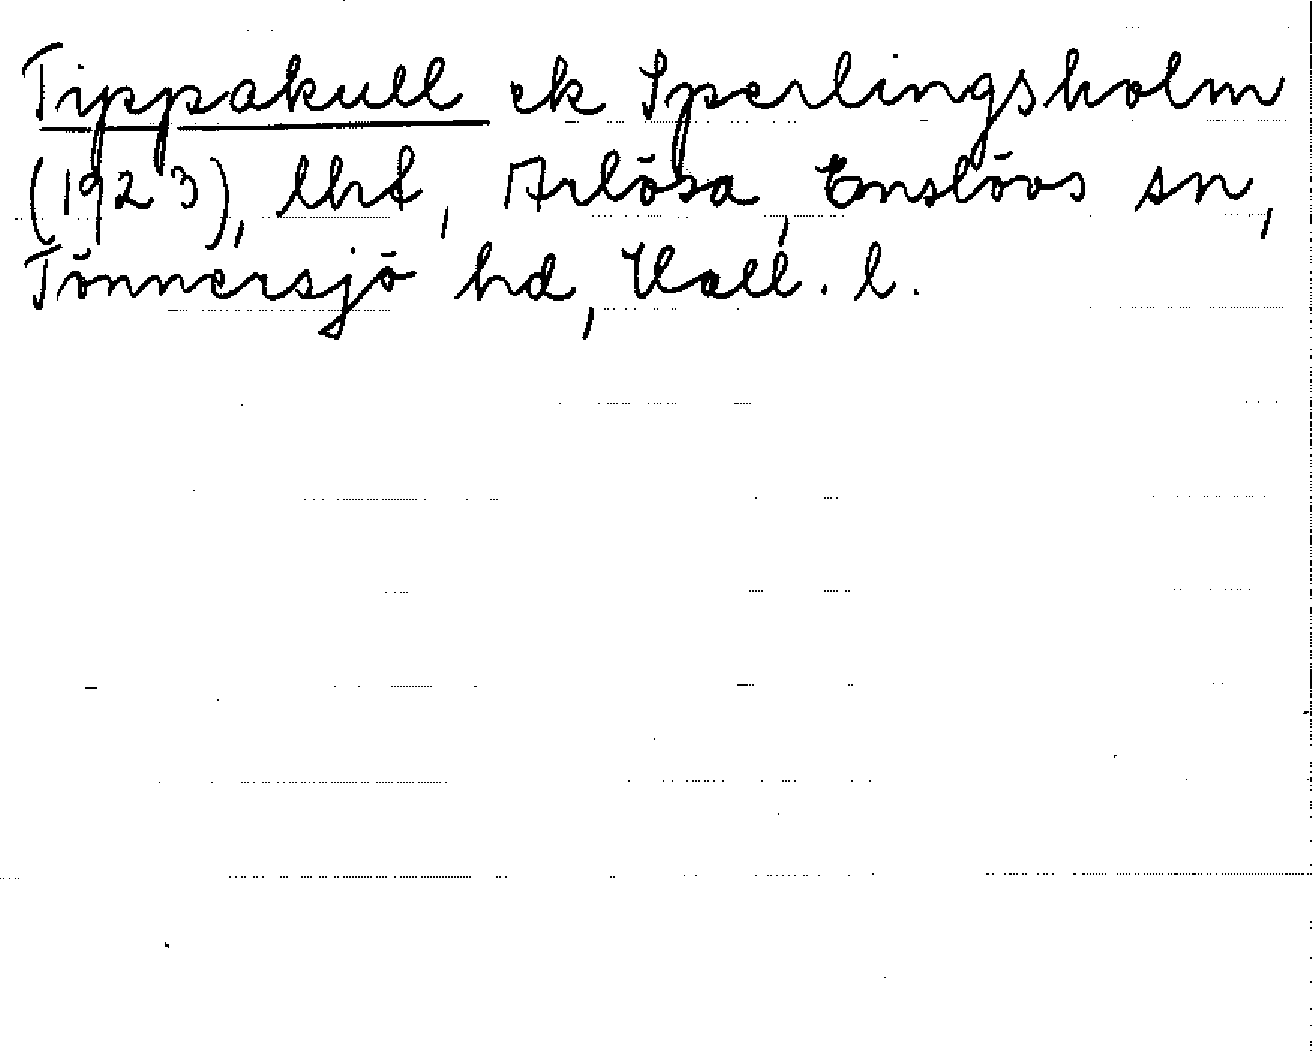 Tippakull ek Sperlingsholm
(1923), lht, Årlösa, Enslövs sn,
Tönnersjö hd, Hall. l.